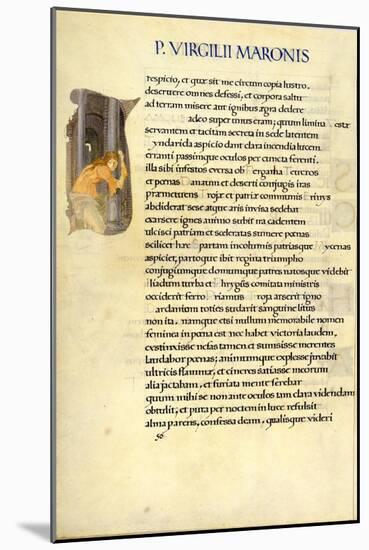 P. VIRGILII MARONIS
respicio, et quæ sit me circum copia lustro.
deseruere omnes defessi, et corpora saltu
ad terram misere aut ignibus ægra dedere
adeo super unus eram; quum limina Vestæ
servantem et tacitam secreta in sede latentem
yndarida aspicio dant clara incendia lucem
erranti passimque oculos per cuncta ferenti.
illa sibi infestos eversa ob ergama eucros
et pœnas anaum et deserti conjugis iras
præmetuens rojæ et patriæ communis rinys
abdiderat sese atque aris invisa sedebat
exarsere ignes animo subit ira cadentem
ulcisci patriam et sceleratas sumere pœnas
scilicet hæc partam incolumis patriasque ycenas
aspiciet, partoque ibit regina triumpho
conjugiumque domumque patres natosque videbit
liadum turba et hrygiis comitata ministris
occiderit ferro riamus roja arserit igni
ardanium toties sudarit sanguine litus
non ita. namque etsi nullum memorabile nomen
feminea in pœna est nec habet victoria laudem,
extinxisse nefas tamen et sumsisse merentes
laudabor pœnas; animumque explesse juvabit
ultricis flammæ, et cineres satiasse meorum
alia jactabam, et furiata mente ferebar
quum mihi se non ante oculos tam clara videndam
obtulit, et pura per noctem in luce refulsit
alma parens, confessa deam, qualisque videri
56